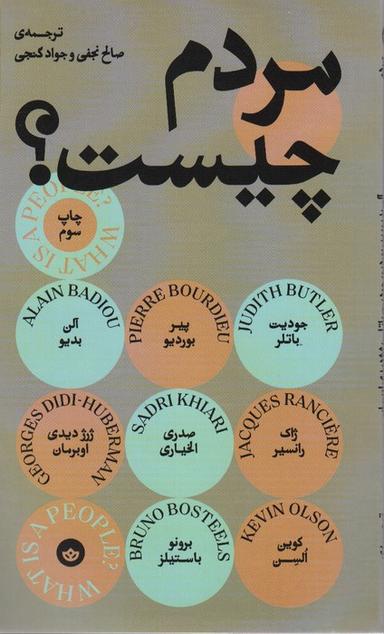 ترجمه‌ی
صالح نجفی و جواد گنجی
مردم
چیست؟
WHAT IS A PEOPLE?
چاپ
سوم
JUDITH BUTLER
جودیت
باتلر
PIERRE BOURDIEU
پی‍یر
بوردیو
ALAIN BADIOU
آلن
بدیو
JACQUES RANCIÈRE
ژاک
رانسیر
SADRI KHIARI
صدری
الخیاری
GEORGES DIDI-HUBERMAN
ژرژ دیدی
اوبرمان
KEVIN OLSON
کوین
اُلسِن
BRUNO BOSTEELS
برونو
باستیلز
WHAT IS A PEOPLE?